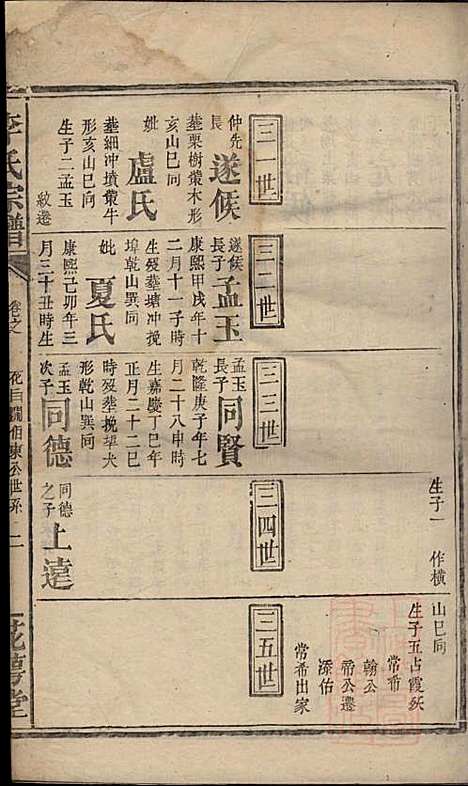 生子一 作橫
山巳向
生子五占霞妖
常希
翰公
帝公遷
添佑
常希出家
三一世
三二世
三三世
三四世
三五世
仲先
長
遂候
塟栗樹叢木形
亥山巳向
妣 盧氏
塟細冲墳叢牛
形亥山巳向
生子二孟玉
紋遷
遂候
長子
孟玉
康熙甲戌年十
二月十一子時
生殁塟塘冲挽
埠乾山巽向
妣 夏氏
康熙己卯年三
月三十丑時生
孟玉
長子
同賢
乾隆庚子年七
月二十八申時
生嘉慶丁巳年
正月二十二巳
時殁塟挽望犬
形乾山巽向
孟玉
次子
同德
同德
之子
上達
李氏宗譜
卷之
世系 二
花萼堂